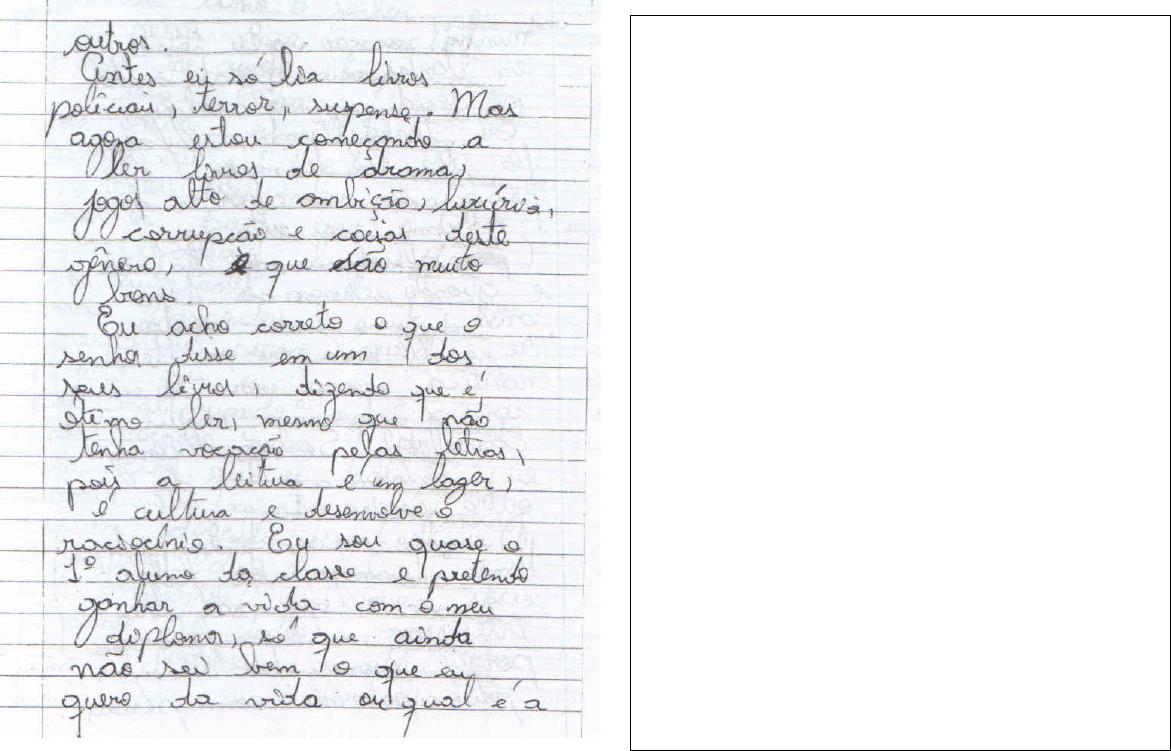 outros.
Antes eu só lia livros
policiais, terror, suspense. Mas
agora estou começando a
ler livros de drama,
jogos alto de ambição, luxúria,
corrupção e coisas deste
gênero, e que são muito
bons.
Eu acho correto o que o
senhor disse em um dos
seus livros, dizendo que é
ótimo ler, mesmo que não
tenha vocação pelas letras,
pois a leitura é um lazer,
é cultura e desenvolve o
raciocínio. Eu sou quase o
1º aluno da classe e pretendo
ganhar a vida com o meu
diploma, só que ainda
não sei bem o que eu
quero da vida ou qual é a